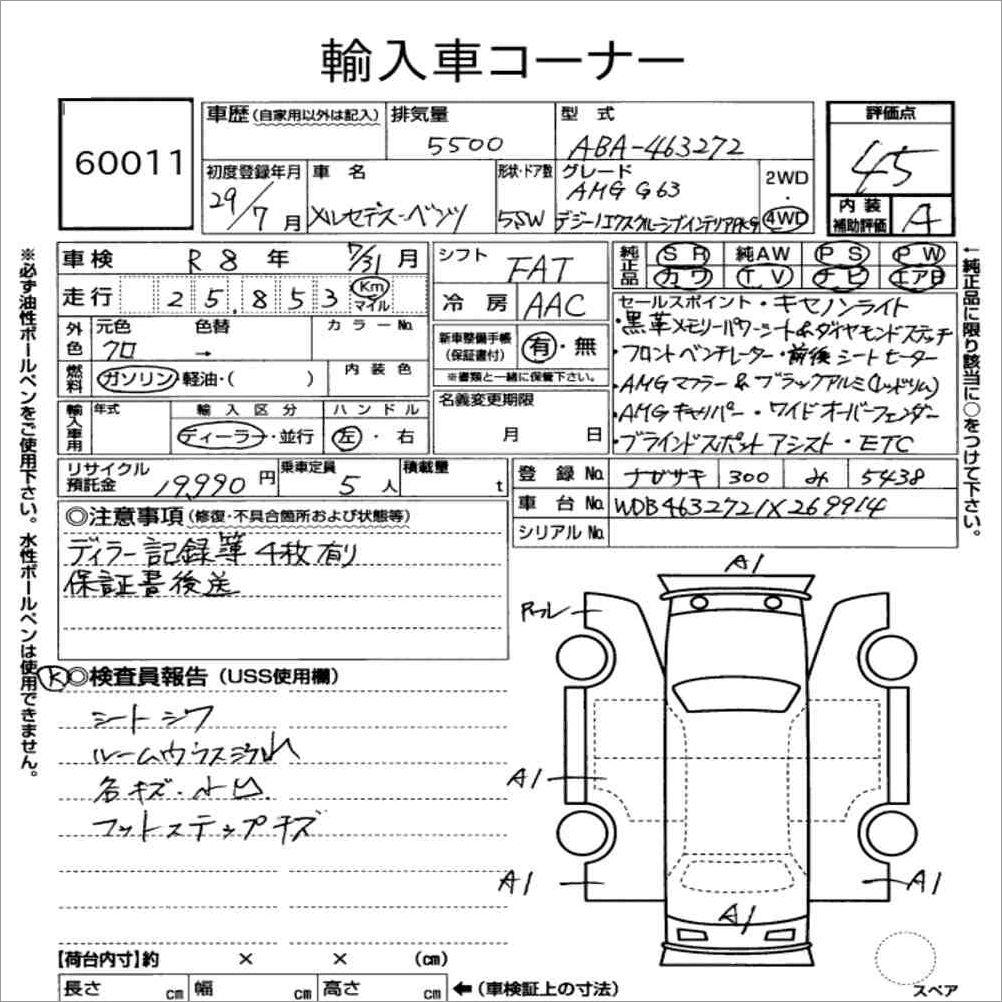 輸入車コーナー
60011
車歴 (自家用以外は記入)
排気量
5500
型 式
ABA-463272
評価点
45
内 装
補助評価
A
初度登録年月
29/7 月
車 名
メルセデス-ベンツ
形状・ドア数
5SW
グレード
AMG G63
デジーノエクスクルーシブインテリアPKG
2WD
4WD
車検 R 8 年 7/31 月
走行 25,853 Km マイル
外色
元色
クロ
色替
→
カラーNo.
燃料
ガソリン・軽油・( )
内 装 色
輸入車用
年式
輸 入 区 分
ディーラー・並行
ハ ン ド ル
左・右
シフト
FAT
冷 房
AAC
新車整備手帳
(保証書付)
有・無
※書類と一緒に保管下さい。
名義変更期限
月 日
純正品
SR 純AW PS PW
カワ TV ナビ エアB
セールスポイント・キセノンライト
・黒革メモリーパワーシート&ダイヤモンドステッチ
・フロントベンチレーター・前後シートヒーター
・AMGマフラー&ブラックアルミ(レッドリム)
・AMGキャリパー・ワイドオーバーフェンダー
・ブラインドスポットアシスト・ETC
リサイクル
預託金
19,990 円
乗車定員
5 人
積載量
t
登 録 No. ナガサキ 300 み 5438
車 台 No. WDB4632721X269914
シリアル No.
◎注意事項 (修復・不具合箇所および状態等)
ディラー記録等4枚有り
保証書後送
K◎検査員報告 (USS使用欄)
シートシワ
フットステップキズ
A1
A1
A1
A1
A1
【荷台内寸】約 × × (cm)
長さ cm 幅 cm 高さ cm ←(車検証上の寸法)
スペア
※必ず油性ボールペンをご使用下さい。水性ボールペンは使用できません。
←純正品に限り該当に○をつけて下さい。